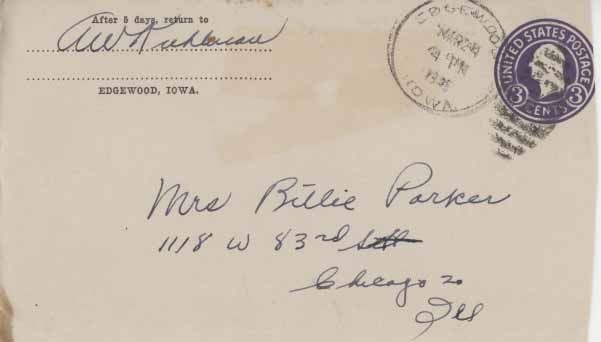 After 5 days, return to
EDGEWOOD, IOWA.
EDGEWOOD
IOWA
UNITED STATES POSTAGE
3 CENTS 3
Mrs Billie Parker
1118 W 83rd
Chicago 20
Ill